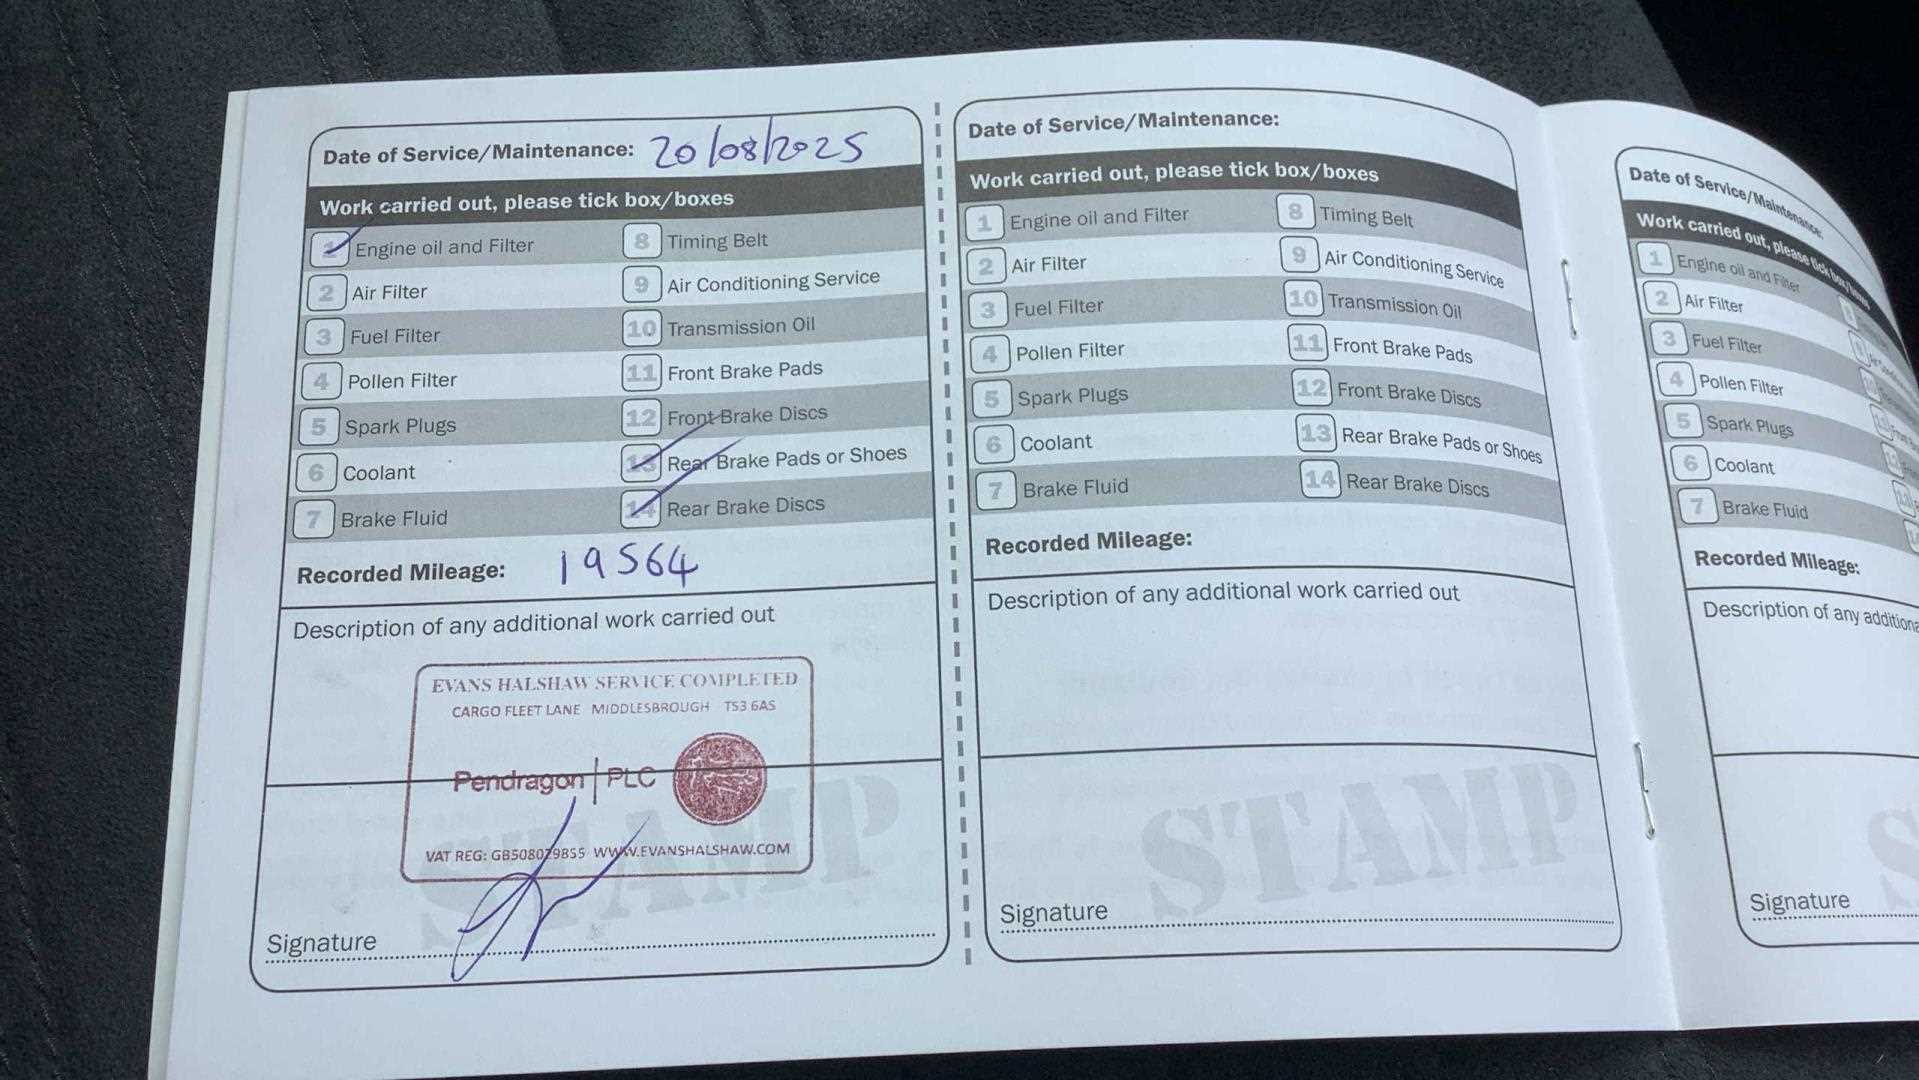 Date of Service/Maintenance: 20/08/2025
Work carried out, please tick box/boxes
1 Engine oil and Filter
2 Air Filter
3 Fuel Filter
4 Pollen Filter
5 Spark Plugs
6 Coolant
7 Brake Fluid
8 Timing Belt
9 Air Conditioning Service
10 Transmission Oil
11 Front Brake Pads
12 Front Brake Discs
13 Rear Brake Pads or Shoes
14 Rear Brake Discs
Recorded Mileage: 19564
Description of any additional work carried out
EVANS HALSHAW SERVICE COMPLETED
CARGO FLEET LANE MIDDLESBROUGH TS3 6AS
Pendragon PLC
VAT REG: GB508029855 WWW.EVANSHALSHAW.COM
STAMP
Signature
Date of Service/Maintenance:
Work carried out, please tick box/boxes
1 Engine oil and Filter
2 Air Filter
3 Fuel Filter
4 Pollen Filter
5 Spark Plugs
6 Coolant
7 Brake Fluid
8 Timing Belt
9 Air Conditioning Service
10 Transmission Oil
11 Front Brake Pads
12 Front Brake Discs
13 Rear Brake Pads or Shoes
14 Rear Brake Discs
Recorded Mileage:
Description of any additional work carried out
STAMP
Signature
Date of Service/Maintenance:
Work carried out, please tick box/boxes
1 Engine oil and Filter
2 Air Filter
3 Fuel Filter
4 Pollen Filter
5 Spark Plugs
6 Coolant
7 Brake Fluid
Recorded Mileage:
Description of any additiona
S
Signature